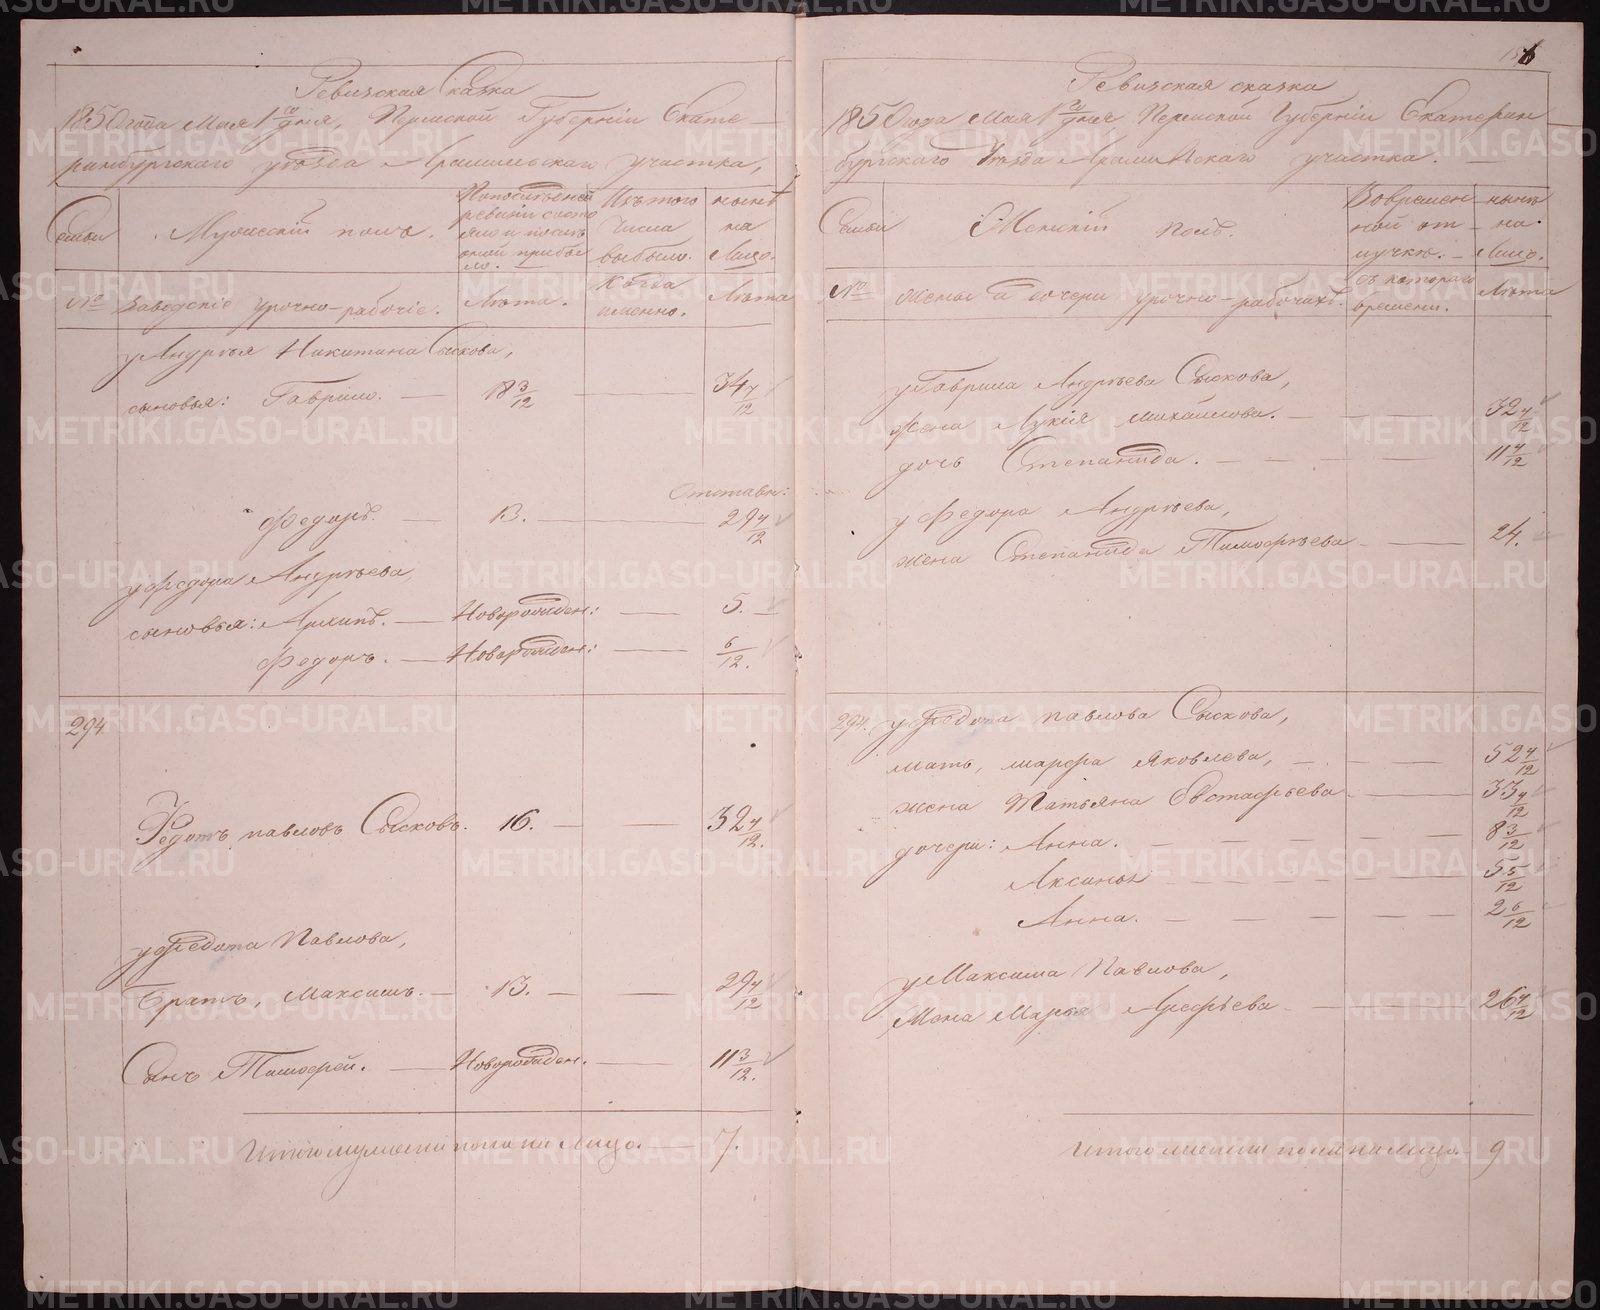 Ревизская Сказка
1850 года Мая 1го дня, Пермской Губерніи Екате-
ринбургскаго уѣзда Арамильскаго участка,
Семьи
Мужескій полъ.
По последней ревизіи состояло и послѣ оной прибыло.
Изъ того Числа выбыло.
нынѣ на Лицо.
№
Заводскіе урочно-рабочіе.
Лѣта.
Когда именно.
Лѣта
у Андрея Никитина Сыскова,
сыновья: Гаврило. — 18 3/12 — 34 7/12
Отставн:
Федоръ. — 13. — 29 4/12
у Федора Андреева,
сыновья: Архипъ. — Новорожден: — 5. —
Федоръ. — Новорожден: — 6/12.
294
Федотъ павловъ Сысковъ. 16. — — 32 4/12.
у Федота Павлова,
Братъ, Максимъ. — 13. — — 29 4/12
Сынъ Тимофей. — Новорожден. — 11 3/12.
Итого мужески пола на лицо. — 7.
Ревизская сказка
1850 года Мая 1го дня Пермской Губерніи Екатерин
бургскаго Уѣзда Арамильскаго участка. —
Семьи
Женскій полъ.
Во временной отлучкѣ. —
нынѣ на Лицо.
№
Жены и дочери урочно-рабочихъ.
съ котораго времени.
Лѣта
у Гаврила Андреева Сыскова,
жена Лукія михайлова. — — — 32 4/12
дочь Степанида. — — — — 11 4/12
у Федора Андреева,
жена Степанида Тимофеева — — 24.
294. у Федота павлова Сыскова,
мать, марфа Яковлева, — — — 52 4/12
жена Татьяна Евстафьева — — 33 4/12
дочери: Анна. — — — — — 8 3/12
Аксинья — — — — — 5 5/12
Анна. — — — — — 2 6/12
у Максима Павлова,
Жена Марья Арефьева — — — 26 4/12
Итого женски пола на лицо — 9
METRIKI.GASO-URAL.RU